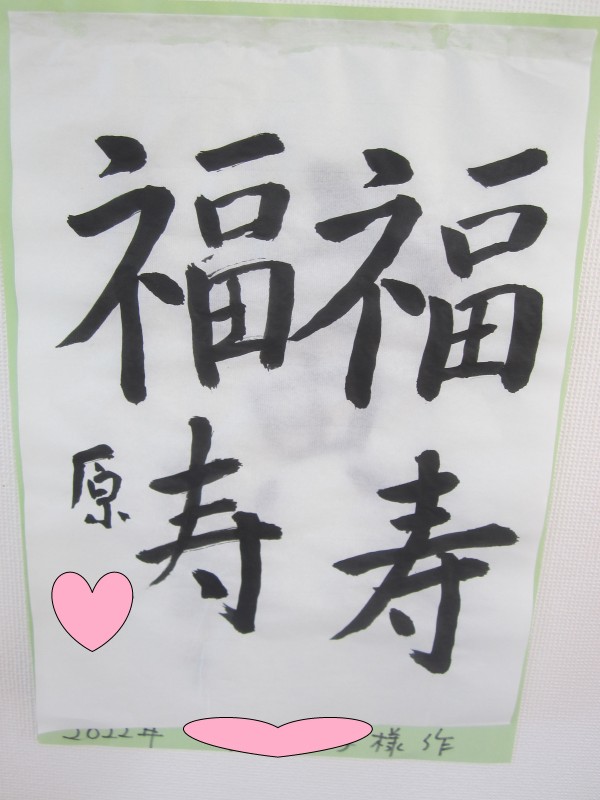 福寿
福寿
原
2022年
様 作